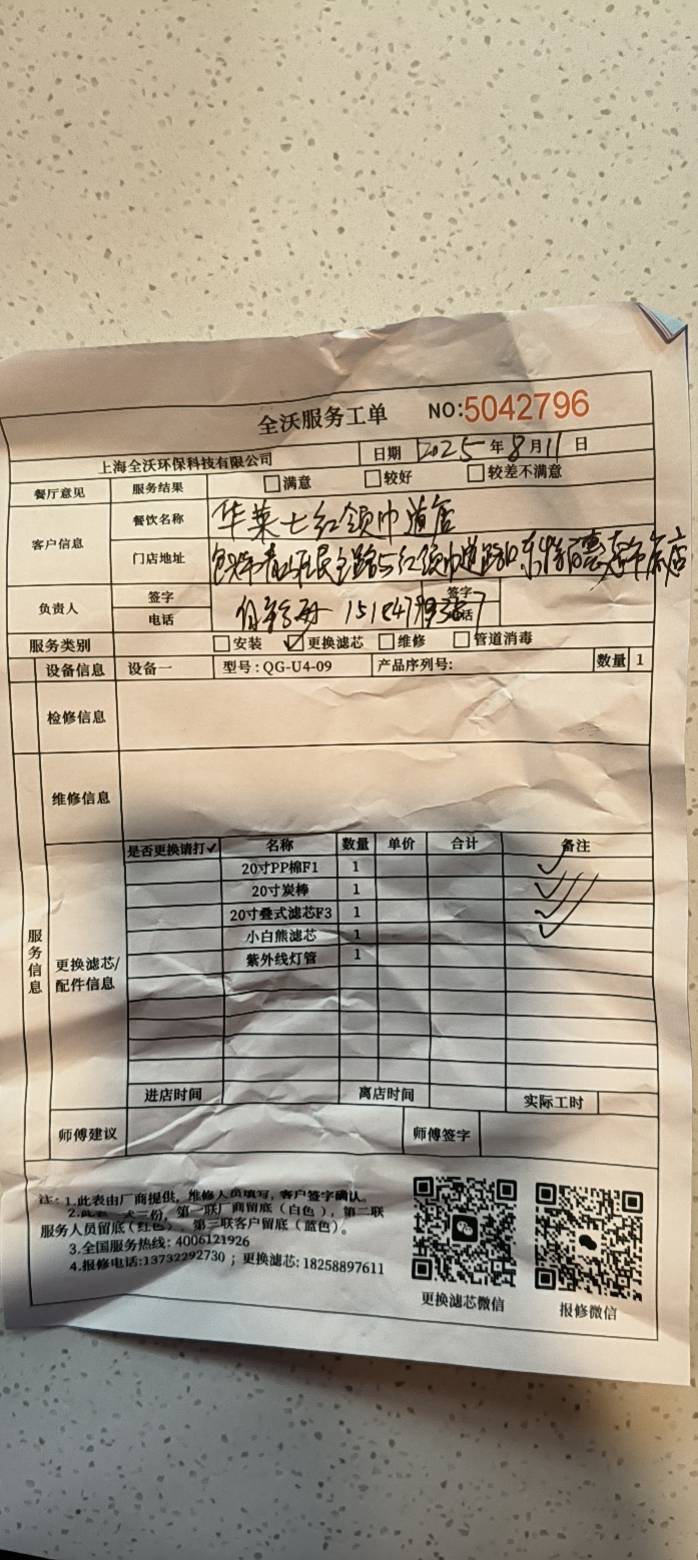 全沃服务工单 NO:5042796
上海全沃环保科技有限公司 日期 2025年8月11日
餐厅意见 服务结果 满意 较好 较差不满意
客户信息 餐饮名称 华莱士红领巾道店
门店地址 民主路与红领巾道路口东
负责人 签字 签字
电话
服务类别 安装 ✓更换滤芯 维修 管道消毒
设备信息 设备一 型号:QG-U4-09 产品序列号: 数量 1
检修信息
维修信息
服务信息
更换滤芯/配件信息
是否更换请打✓ 名称 数量 单价 合计 备注
20寸PP棉F1 1 ✓
20寸炭棒 1 ✓
20寸叠式滤芯F3 1 ✓
小白熊滤芯 1 ✓
紫外线灯管 1
进店时间 离店时间 实际工时
师傅建议 师傅签字
注:1.此表由厂商提供,维修人员填写,客户签字确认。
2.此表一式三份,第一联厂商留底(白色),第二联
服务人员留底(红色),第三联客户留底(蓝色)。
3.全国服务热线:4006121926
4.报修电话:13732292730;更换滤芯:18258897611
更换滤芯微信 报修微信